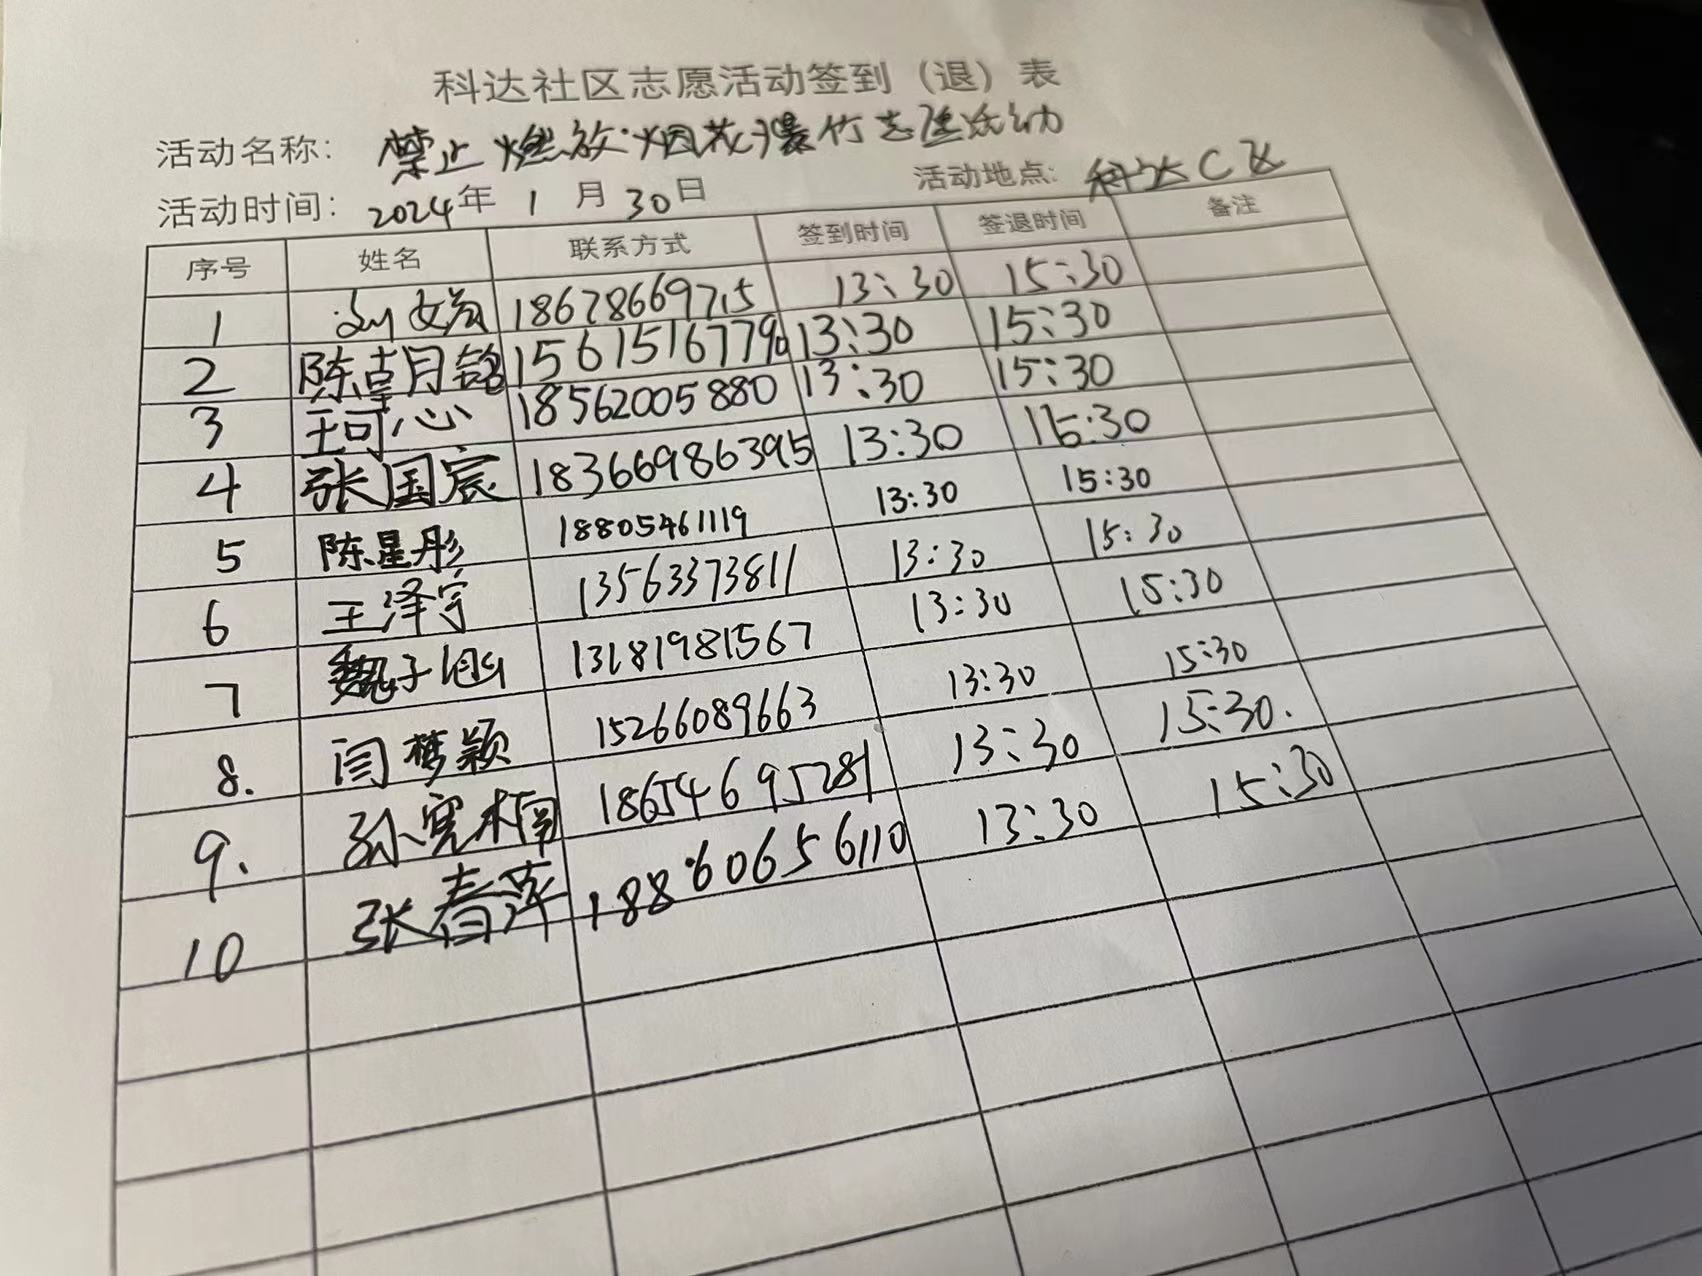 科达社区志愿活动签到（退）表
活动名称: 禁止燃放烟花爆竹志愿活动
活动时间: 2024年 1 月 30日 活动地点: 科达C区
序号 姓名 联系方式 签到时间 签退时间 备注
1 刘 18678669715 13:30 15:30
2 陈 15615167790 13:30 15:30
3 王可心 18562005880 13:30 15:30
4 张国宸 18366986395 13:30 15:30
5 陈星彤 18805461119 13:30 15:30
6 王泽宇 13563373811 13:30 15:30
7 魏子 13181981567 13:30 15:30
8. 闫梦颖 15266089663 13:30 15:30
9. 孙宽楠 18654695281 13:30 15:30.
10 张春萍 18860656110 13:30 15:30